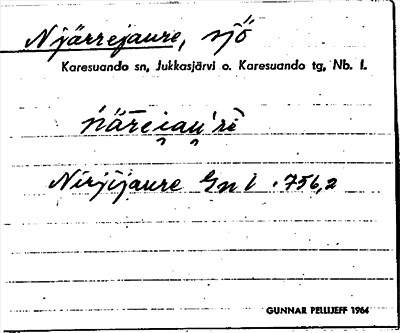 Njärrejaure, sjö
Karesuando sn, Jukkasjärvi o. Karesuando tg, Nb. l.
ńäreiau'rē
Nirjijaure Gn l. 756,2
GUNNAR PELLIJEFF 1964